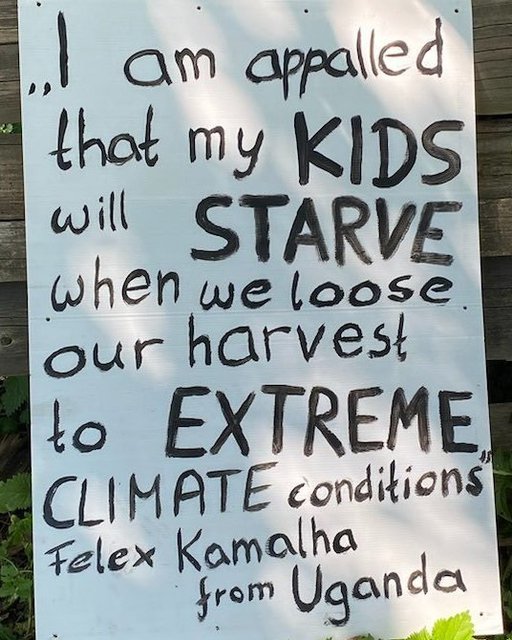 „I am appalled
that my KIDS
will STARVE
when we loose
our harvest
to EXTREME
CLIMATE conditions"
Felex Kamalha
from Uganda